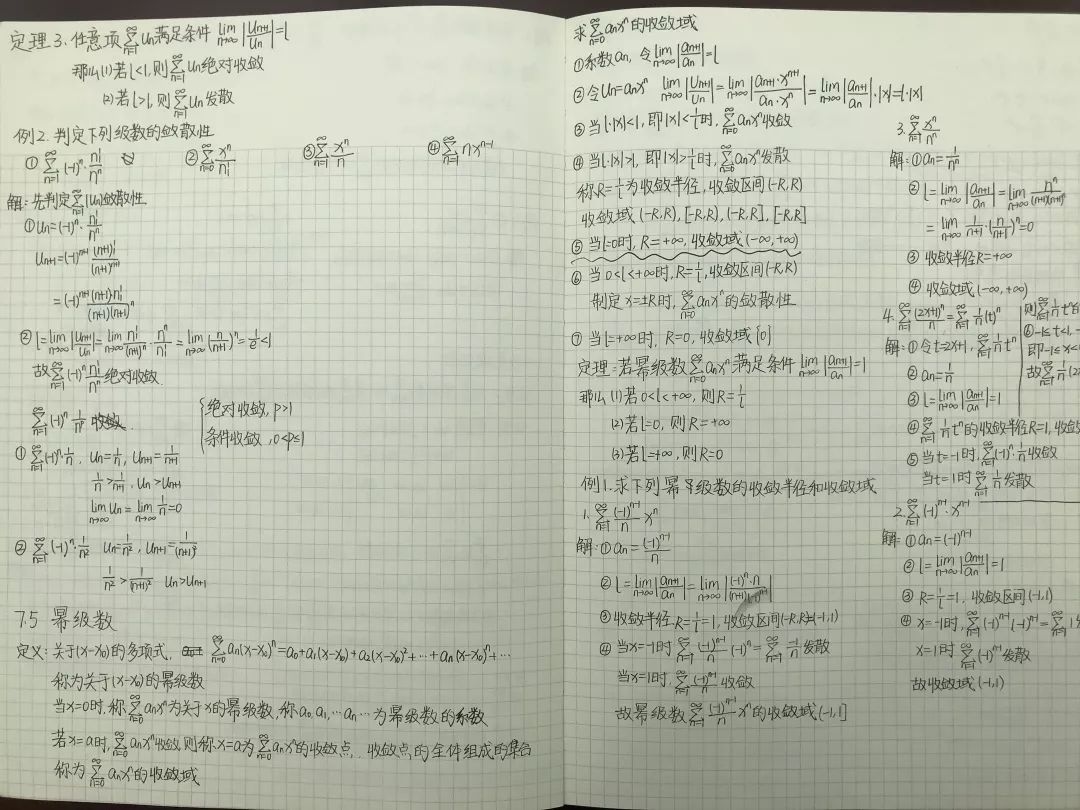 定理3.任意项∑(n=1→∞)Un满足条件 lim(n→∞)|Un+1/Un|=l
那么(1)若l<1,则∑(n=1→∞)Un绝对收敛
(2)若l>1,则∑(n=1→∞)Un发散
例2.判定下列级数的敛散性
①∑(n=1→∞)(-1)ⁿ·n!/nⁿ ②∑(n=0→∞)xⁿ/n! ③∑(n=1→∞)xⁿ/n ④∑(n=1→∞)nxⁿ⁻¹
解:先判定∑(n=1→∞)|Un|敛散性
①Un=(-1)ⁿ·n!/nⁿ
Un+1=(-1)ⁿ⁺¹(n+1)!/(n+1)ⁿ⁺¹
=(-1)ⁿ⁺¹(n+1)·n!/(n+1)(n+1)ⁿ
②l=lim(n→∞)|Un+1/Un|=lim(n→∞)n!/(n+1)ⁿ·nⁿ/n!=lim(n→∞)(n/(n+1))ⁿ=1/e<1
故∑(n=1→∞)(-1)ⁿn!/nⁿ绝对收敛.
∑(n=1→∞)(-1)ⁿ1/nᵖ {绝对收敛,p>1
条件收敛,0<p≤1
①∑(n=1→∞)(-1)ⁿ·1/n, Un=1/n, Un+1=1/(n+1)
1/n>1/(n+1), Un>Un+1
lim(n→∞)Un=lim(n→∞)1/n=0
②∑(n=1→∞)(-1)ⁿ·1/n² Un=1/n², Un+1=1/(n+1)²
1/n²>1/(n+1)² Un>Un+1
7.5 幂级数
定义:关于(x-x₀)的多项式, ∑(n=0→∞)an(x-x₀)ⁿ=a₀+a₁(x-x₀)+a₂(x-x₀)²+…+an(x-x₀)ⁿ+…
称为关于(x-x₀)的幂级数
当x=0时,称∑(n=0→∞)anxⁿ为关于x的幂级数,称a₀,a₁,…an…为幂级数的系数
若x=a时,∑(n=0→∞)anxⁿ收敛,则称x=a为∑(n=0→∞)anxⁿ的收敛点,收敛点的全体组成的集合
称为∑(n=0→∞)anxⁿ的收敛域
求∑(n=0→∞)anxⁿ的收敛域
①系数an,令lim(n→∞)|an+1/an|=l
②令Un=anxⁿ lim(n→∞)|Un+1/Un|=lim(n→∞)|an+1·xⁿ⁺¹/an·xⁿ|=lim(n→∞)|an+1/an|·|x|=l·|x|
③当l·|x|<1,即|x|<1/l时,∑(n=0→∞)anxⁿ收敛
④当l·|x|>1,即|x|>1/l时,∑(n=0→∞)anxⁿ发散
称R=1/l为收敛半径,收敛区间(-R,R)
收敛域(-R,R),[-R,R),(-R,R],[-R,R]
⑤当l=0时,R=+∞,收敛域(-∞,+∞)
⑥当0<l<+∞时,R=1/l,收敛区间(-R,R)
制定x=±R时,∑(n=0→∞)anxⁿ的敛散性
⑦当l=+∞时,R=0,收敛域{0}
定理=若幂级数∑(n=0→∞)anxⁿ满足条件lim(n→∞)|an+1/an|=l
那么(1)若0<l<+∞,则R=1/l
(2)若l=0,则R=+∞
(3)若l=+∞,则R=0
例1.求下列幂级数的收敛半径和收敛域
1.∑(n=1→∞)(-1)ⁿ⁻¹/n xⁿ
解:①an=(-1)ⁿ⁻¹/n
②l=lim(n→∞)|an+1/an|=lim(n→∞)|(-1)ⁿ·n/(n+1)(-1)ⁿ⁻¹|
③收敛半径R=1/l=1,收敛区间(-R,R)=(-1,1)
④当x=-1时∑(n=1→∞)(-1)ⁿ⁻¹/n(-1)ⁿ=∑(n=1→∞)-1/n发散
当x=1时,∑(n=1→∞)(-1)ⁿ⁻¹/n收敛
故幂级数∑(n=1→∞)(-1)ⁿ⁻¹/n xⁿ的收敛域(-1,1]
3.∑(n=1→∞)xⁿ/nⁿ
解:①an=1/nⁿ
②l=lim(n→∞)|an+1/an|=lim(n→∞)nⁿ/(n+1)(n+1)ⁿ
=lim(n→∞)1/(n+1)·(n/(n+1))ⁿ=0
③收敛半径R=+∞
④收敛域(-∞,+∞)
4.∑(n=1→∞)(2x+1)ⁿ/n=∑(n=1→∞)1/n(t)ⁿ
解:①令t=2x+1,∑(n=1→∞)1/n tⁿ
②an=1/n
③l=lim(n→∞)|an+1/an|=1
④∑(n=1→∞)1/n tⁿ的收敛半径R=1,收敛
⑤当t=-1时,∑(n=1→∞)(-1)ⁿ·1/n收敛
当t=1时∑(n=1→∞)1/n发散
则∑(n=1→∞)1/n tⁿ的
⑥-1≤t<1,
即-1≤x<
故∑(n=1→∞)1/n(2
2.∑(n=1→∞)(-1)ⁿ⁻¹·xⁿ⁻¹
解:①an=(-1)ⁿ⁻¹
②l=lim(n→∞)|an+1/an|=1
③R=1/l=1,收敛区间(-1,1)
④x=-1时,∑(n=1→∞)(-1)ⁿ⁻¹(-1)ⁿ⁻¹=∑(n=1→∞)1
x=1时∑(n=1→∞)(-1)ⁿ⁻¹发散
故收敛域(-1,1)